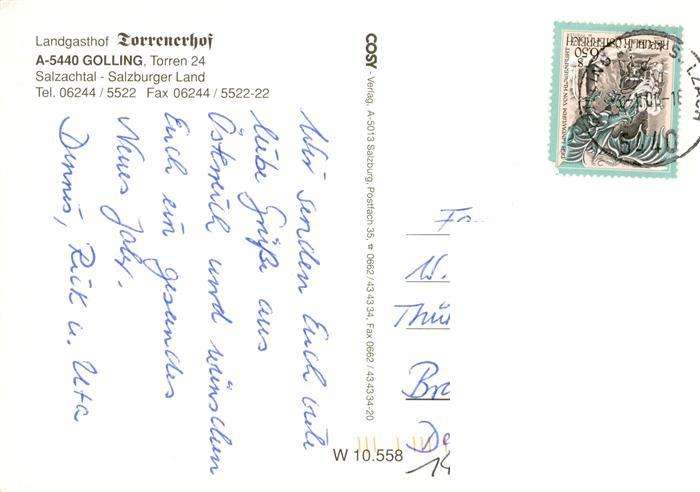 Landgasthof Torrenerhof
A-5440 GOLLING, Torren 24
Salzachtal - Salzburger Land
Tel. 06244 / 5522 Fax 06244 / 5522-22
Wir senden Euch viele
liebe Grüße aus
Österreich und wünschen
Euch ein gesundes
Neues Jahr.
Dennis, Rick u. Uta
COSY - Verlag, A-5013 Salzburg, Postfach 35, ☎ 0662 / 43 43 34, Fax 0662 / 43 43 34-20
W 10.558
W.
Thü
Bra
De
14
REPUBLIK ÖSTERREICH
S 6.50
5440